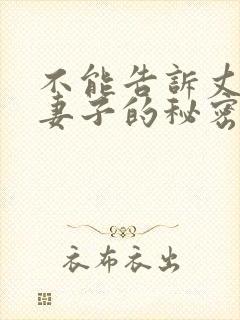 不能告訴丈
妻子的秘密
衣布衣出